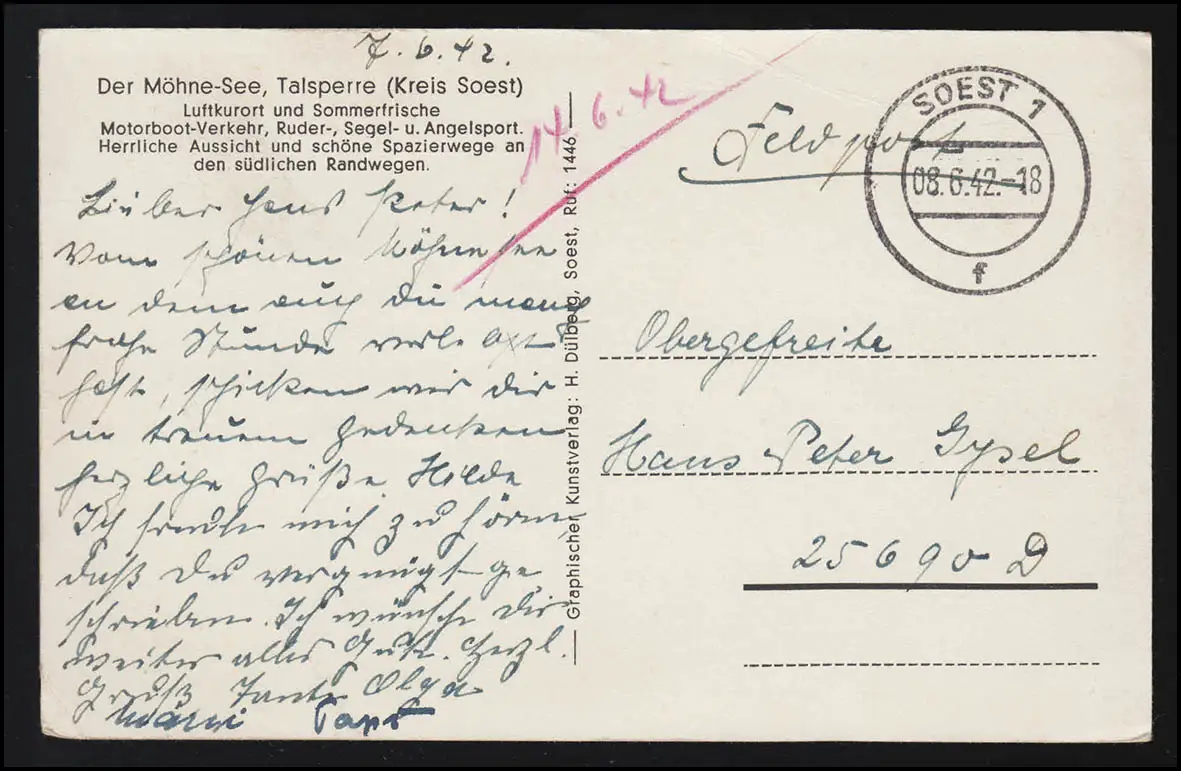 7.6.42.
Der Möhne-See, Talsperre (Kreis Soest)
Luftkurort und Sommerfrische
Motorboot-Verkehr, Ruder-, Segel- u. Angelsport.
Herrliche Aussicht und schöne Spazierwege an
den südlichen Randwegen.
14.6.42
Lieber Hans Peter!
Vom schönen Möhnesee
an dem auch du manch
frohe Stunde verlebt
hast, schicken wir dir
in treuem Gedenken
herzliche Grüße Hilde
Ich freute mich zu hören,
daß Du vergnügt ge
schrieben. Ich wünsche Dir
weiter alles Gute. Herzl.
Gruß Tante Olga
Graphischer Kunstverlag: H. Dülberg, Soest, Ruf: 1446
Feldpost
SOEST 1
08.6.42.-18
f
Obergefreite
Hans Peter Gysel
25690 D